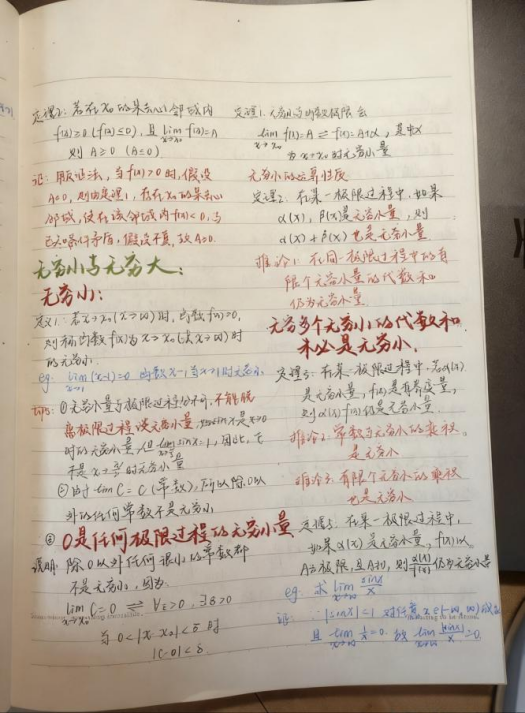 定理2: 若在x₀的某去心邻域内
f(x)≥0 (f(x)≤0), 且 lim x→x₀ f(x)=A
则 A≥0 (A≤0)
证: 用反证法, 当f(x)>0时, 假设
A<0, 则由定理1, 存在x₀的某去心
邻域, 使在该邻域内f(x)<0, 与
已知条件矛盾, 假设不真, 故A≥0.
无穷小与无穷大:
无穷小:
定义1: 若x→x₀(x→∞)时, 函数f(x)→0,
则称函数f(x)为x→x₀(或x→∞)时
的无穷小
eg: lim x→1 (x-1)=0 函数x-1当x→1时无穷小
tips: ①无穷小量与极限过程分不开, 不能脱
离极限过程谈无穷小量, sinx是x→0
时的无穷小量, 但 sinx=1, 因此, 它
不是x→π/2时无穷小量
②由于 lim C = C (常数), 所以除0以
外的任何常数不是无穷小
③ 0是任何极限过程的无穷小量
说明: 除0以外任何很小的常数都
不是无穷小, 因为
lim x→x₀ C=0 ⇌ ∀ε>0, ∃δ>0
当 0<|x-x₀|<δ 时
|C-0|<ε.
定理1: 无穷小与函数极限关
lim x→x₀ f(x)=A ⇌ f(x)=A+α, 其中α
为x→x₀时的无穷小量
无穷小的运算性质
定理2: 在某一极限过程中, 如果
α(x), β(x)是无穷小量, 则
α(x)+β(x)也是无穷小量
推论1: 在同一极限过程中的有
限个无穷小量的代数和
仍为无穷小量
无穷多个无穷小的代数和
未必是无穷小.
定理3: 在某一极限过程中, 若α(x)
是无穷小量, f(x)是有界变量,
则α(x)f(x)仍是无穷小量
推论2: 常数与无穷小的乘积
是无穷小
推论3: 有限个无穷小的乘积
也是无穷小
定理5: 在某一极限过程中,
如果α(x)是无穷小量, f(x)以
A为极限, 且A≠0, 则 α(x)/f(x) 仍为无穷小量
eg: 求 lim x→∞ sinx/x
证: ∵|sinx|≤1 对任意x∈(-∞,∞)
且 lim x→∞ 1/x=0. 故 lim x→∞ sinx/x=0.